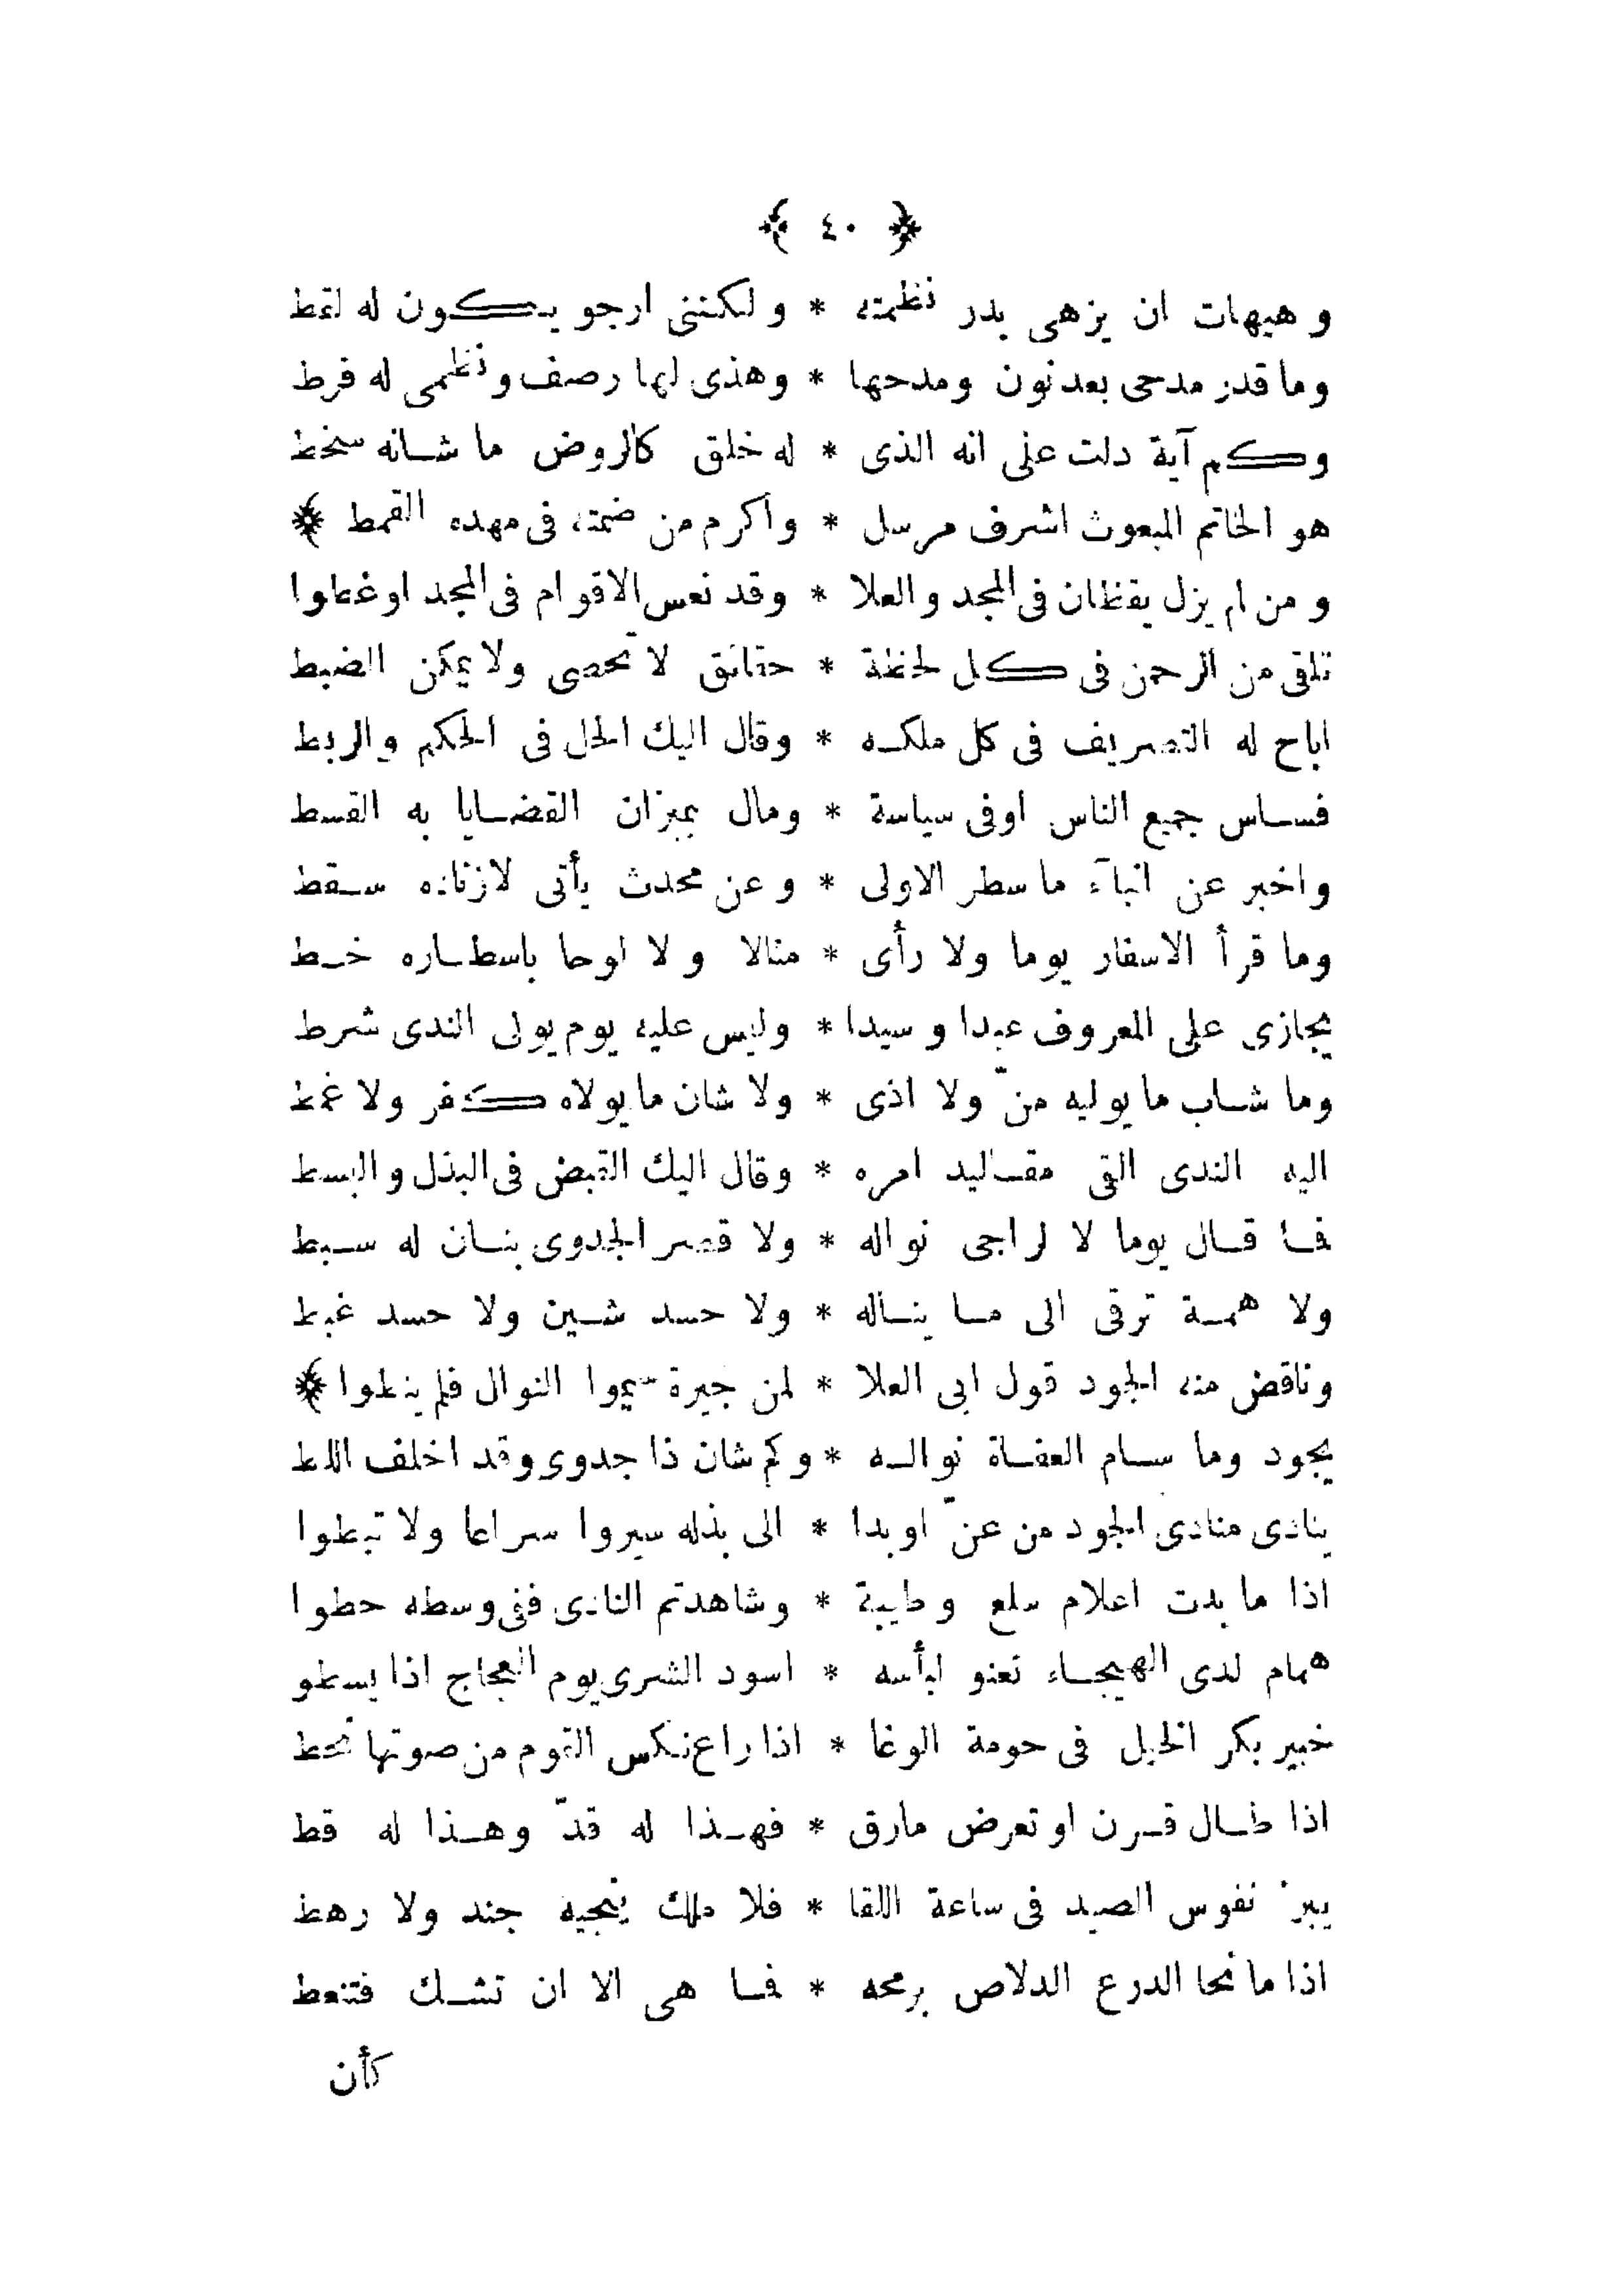 ﴿ ٤٠ ﴾
وهيهات ان يزهى بدر نظمته * ولكننى ارجو يكون له لقط
وما قدر مدحى بعد نون ومدحها * وهذى لها رصف ونظمى له فرط
وكم آية دلت على انه الذى * له خلق كالروض ما شانه سخط
هو الخاتم المبعوث اشرف مرسل * واكرم من ضمته فى مهده القمط ﴾
ومن لم يزل يقظان فى المجد والعلا * وقد نعس الاقوام فى المجد او غطوا
تلقى من الرحمن فى كل لحظة * حقائق لا تحصى ولا يمكن الضبط
اباح له التصريف فى كل ملكه * وقال اليك الحل فى الحكم والربط
فساس جميع الناس اوفى سياسة * ومال بميزان القضايا به القسط
واخبر عن انبآء ما سطر الاولى * وعن محدث يأتى لازناده سقط
وما قرأ الاسفار يوما ولا رأى * مثالا ولا لوحا باسطاره خط
يجازى على المعروف عبدا وسيدا * وليس عليه يوم يولى الندى شرط
وما شاب ما يوليه منّ ولا اذى * ولا شان ما يولاه كفر ولا غمط
اليه الندى القى مقاليد امره * وقال اليك القبض فى البذل والبسط
فما قال يوما لا لراجى نواله * ولا قصر الجدوى بنان له سبط
ولا همة ترقى الى ما يناله * ولا حسد شين ولا حسد غبط
وناقض منه الجود قول ابى العلا * لمن جيرة سيموا النوال فلم ينطوا ﴾
يجود وما سام العفاة نواله * وكم شان ذا جدوى وقد اخلف اللط
ينادى منادى الجود من عنّ او بدا * الى بذله سيروا سراعا ولا تبطوا
اذا ما بدت اعلام سلع وطيبة * وشاهدتم النادى ففى وسطه حطوا
همام لدى الهيجاء تعنو لبأسه * اسود الشرى يوم العجاج اذا يسطو
خبير بكر الخيل فى حومة الوغا * اذا راع نكس القوم من صوتها نحط
اذا طال قرن او تعرض مارق * فهذا له قدّ وهذا له قط
يبز نفوس الصيد فى ساعة اللقا * فلا ملك ينجيه جند ولا رهط
اذا ما نحا الدرع الدلاص برمحه * فما هى الا ان تشك فتنعط
كأن